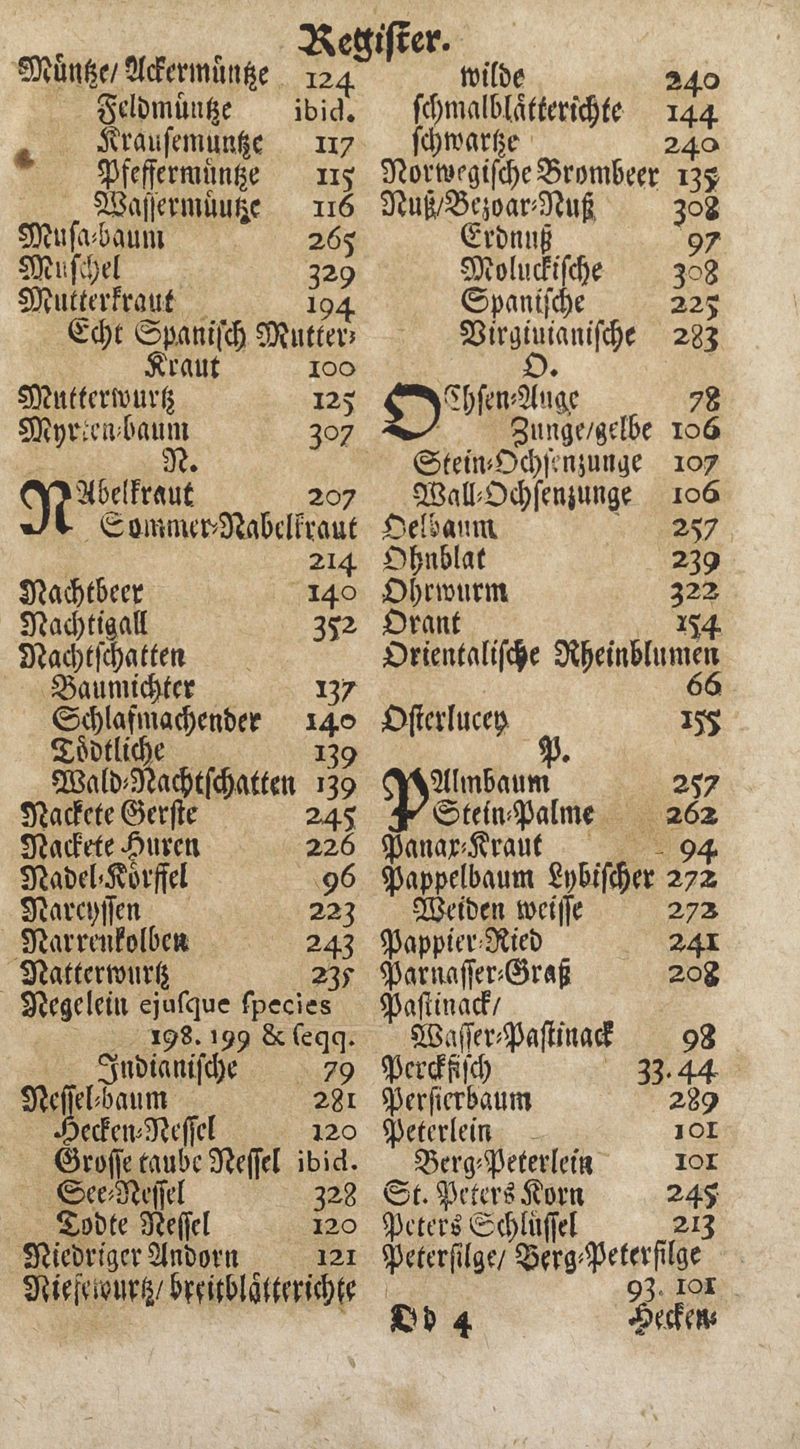 Regiſter.
Müntze/ Ackermüntze 124
Feldmüntze ibid.
Krauſemuntze 117
Pfeffermüntze 115
Waſſermüutze 116
Muſa-baum 265
Muſchel 329
Mutterkraut 194
Echt Spaniſch Mutter-
Kraut 100
Mutterwurtz 125
Myrten-baum 307
N.
NAbelkraut 207
Sommer-Nabelkraut
214
Nachtbeer 140
Nachtigall 352
Nachtſchatten
Baumichter 137
Schlafmachender 140
Tödtliche 139
Wald-Nachtſchatten 139
Nackete Gerſte 245
Nackete Huren 226
Nadel-Körffel 96
Narcyſſen 223
Narrenkolben 243
Natterwurtz 235
Negelein ejuſque ſpecies
198. 199 & ſeqq.
Indianiſche 79
Neſſel-baum 281
Hecken-Neſſel 120
Groſſe taube Neſſel ibid.
See-Neſſel 328
Todte Neſſel 120
Niedriger Andorn 121
Nieſewurtz/ breitblätterichte
wilde 240
ſchmalblätterichte 144
ſchwartze 240
Norwegiſche Brombeer 135
Nuß/Bezoar-Nuß 308
Erdnuß 97
Moluckiſche 308
Spaniſche 225
Virgiuianiſche 283
O.
OChſen-Auge 78
Zunge/gelbe 106
Stein-Ochſenzunge 107
Wall-Ochſenzunge 106
Oelbaum 257
Ohnblat 239
Ohrwurm 322
Orant 154
Orientaliſche Rheinblumen
66
Oſterlucey 155
P.
PAlmbaum 257
Stein-Palme 262
Panax-Kraut 94
Pappelbaum Lybiſcher 272
Weiden weiſſe 272
Pappier-Ried 241
Parnaſſer-Graß 208
Paſtinack/
Waſſer-Paſtinack 98
Perckfiſch 33. 44
Perſierbaum 289
Peterlein 101
Berg-Peterlein 101
St. Peters Korn 245
Peters Schlüſſel 213
Peterſilge/ Berg-Peterſilge
93. 101
Dd 4 Hecken-